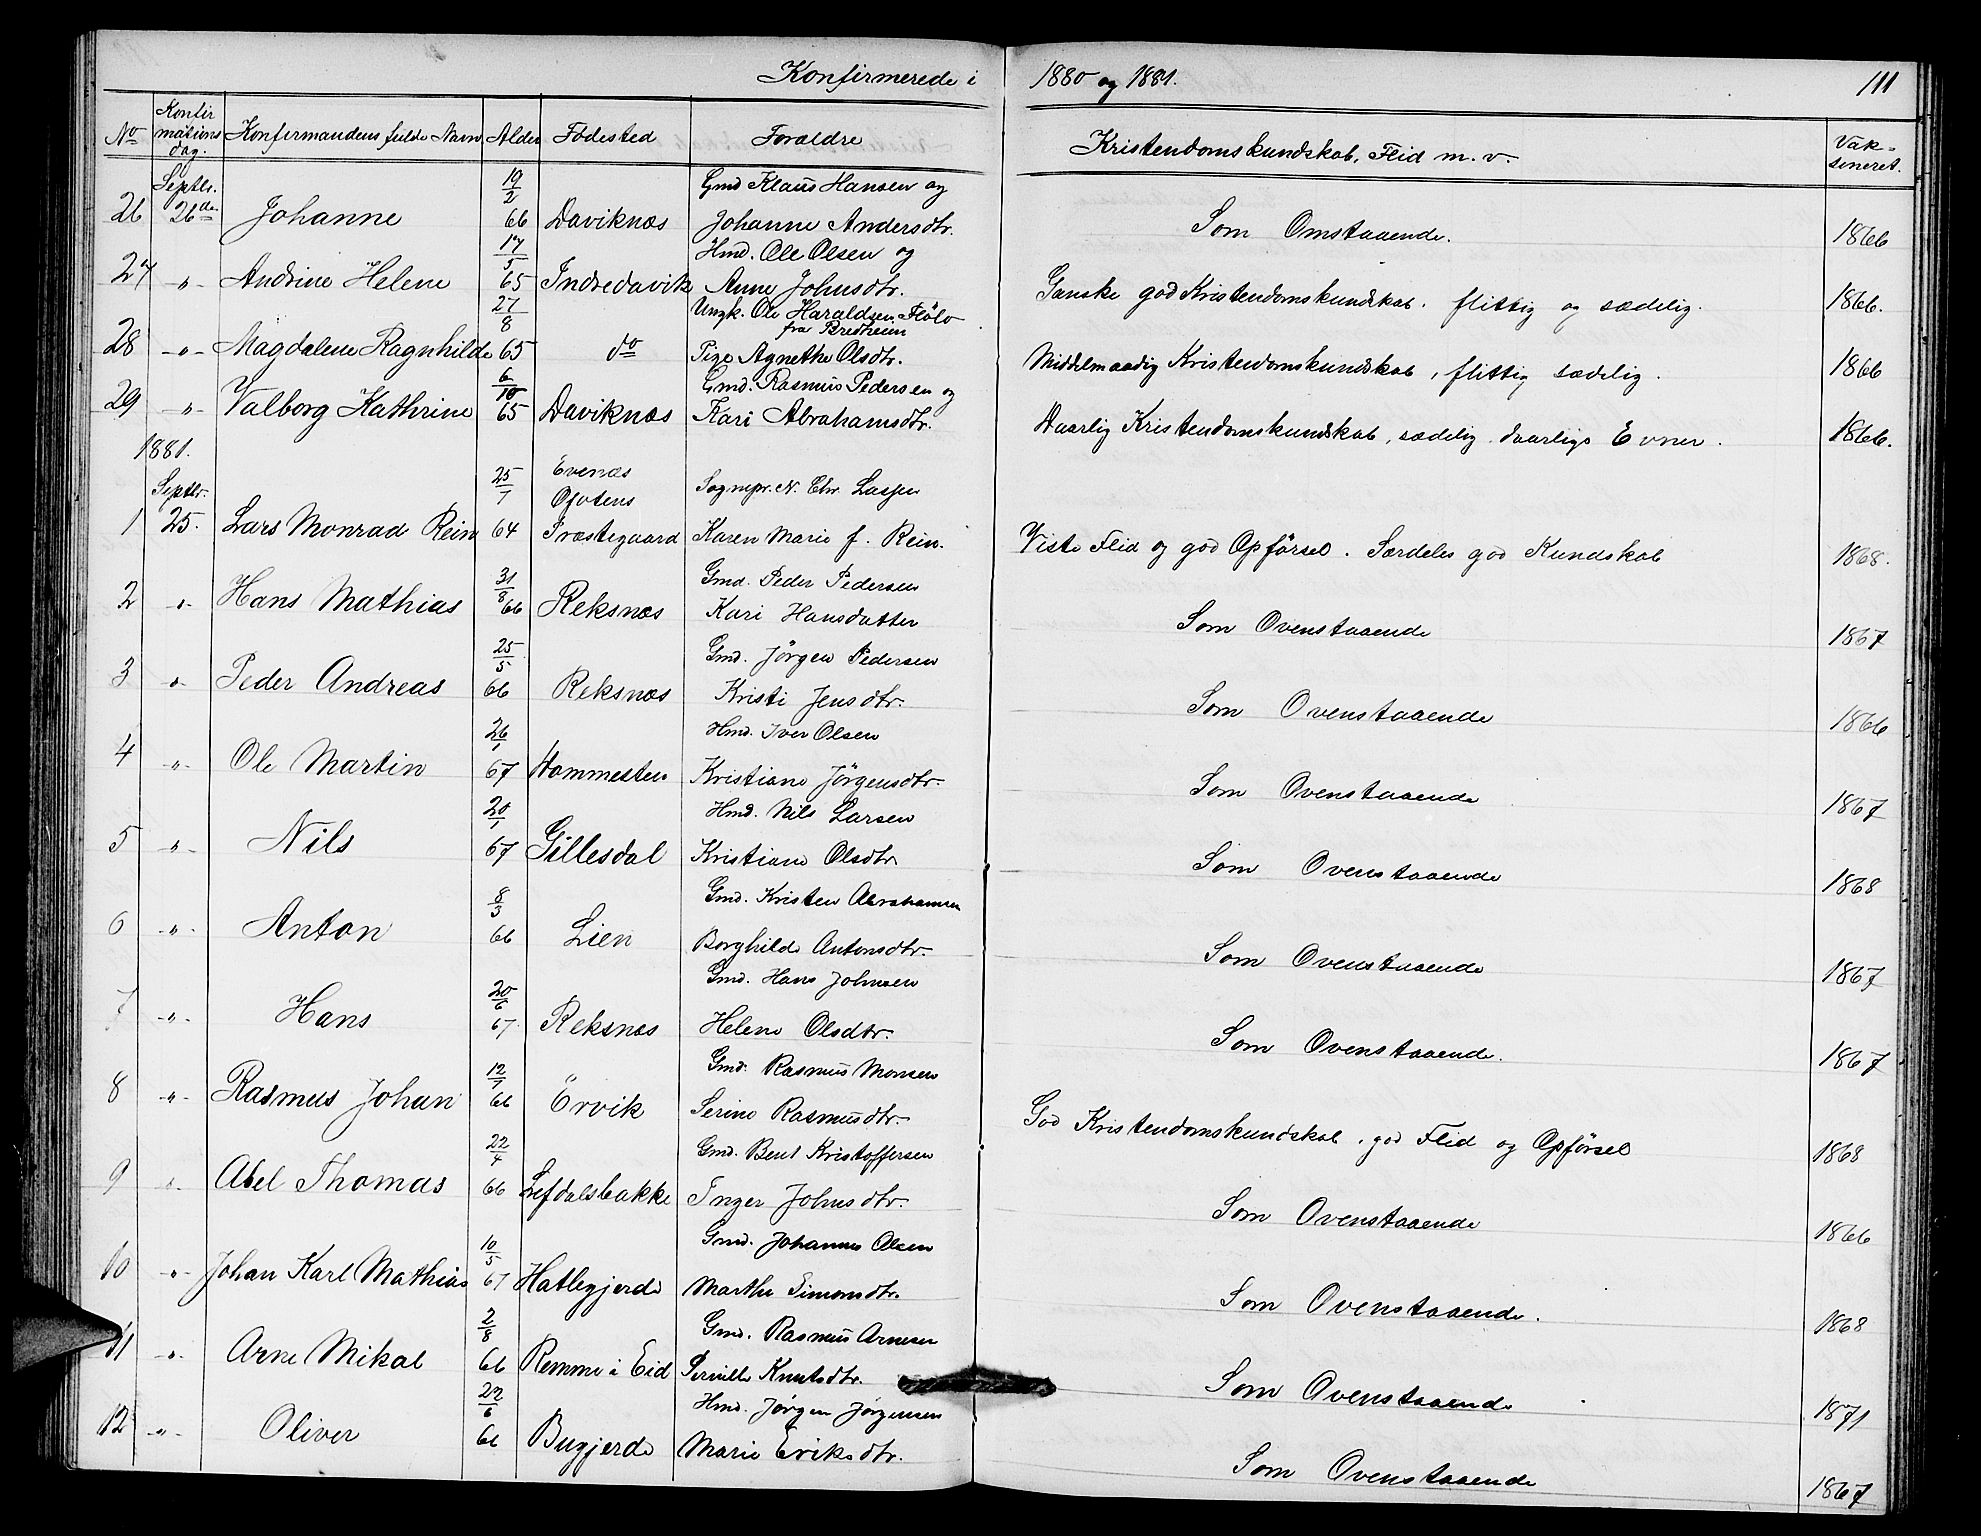 Konfirmerede i 1880 og 1881. 111
No Konfirmationsdag. Konfirmandens fulde Navn Alder Födested Forældre Kristendomskundskab, Flid m. v. Vaksineret.
Septbr. 19/2 Gmd Klaus Hansen og
26 26de Johanne 66 Daviknæs Johanne Andersdtr. Som Omstaaende. 1866
17/5 Hmd. Ole Olsen og
27 -"- Andrine Helene 65 Indredavik Anne Johnsdtr. Ganske god Kristendomskundskab. flittig og sædelig. 1866.
27/8 Ungk. Ole Haraldsen Flölo
fra Bredheim
28 -"- Magdalene Ragnhilde 65 do Pige Agnethe Olsdtr. Middelmaadig Kristendomskundskab, flittig sædelig. 1866
6/10 Gmd. Rasmus Pedersen og
29 -"- Valborg Kathrine 65 Daviknæs Kari Abrahamsdtr. Daarlig Kristendomskundskab, sædelig. daarlige Evner. 1866.
1881.
Septbr. 25/7 Evenæs Ofotens Sognepr. N. Chr. Lassen
1 25. Lars Monrad Rein 64 Præstegaard Karen Marie f. Rein. Viste Flid og god Opförsel. Særdeles god Kundskab 1868.
31/8 Gmd. Peder Pedersen
2 -"- Hans Mathias 66 Reksnæs Kari Hansdatter Som Ovenstaaende 1867
25/5 Gmd. Jörgen Pedersen
3 " Peder Andreas 66 Reksnæs Kristi Jensdtr. Som Ovenstaaende 1866
26/1 Hmd. Iver Olsen
4 -"- Ole Martin 67 Hammersten Kristiane Jörgensdtr. Som Ovenstaaende 1867
20/1 Hmd. Nils Larsen
5 -"- Nils 67 Gillesdal Kristiane Olsdtr. Som Ovenstaaende 1868
8/3 Gmd. Kristen Abrahamsen
6 -"- Anton 66 Lien Borghilde Antonsdtr. Som Ovenstaaende 1867
20/6 Gmd. Hans Johnsen
7 -"- Hans 67 Reksnæs Helene Olsdtr. Som Ovenstaaende. 1867
12/1 Gmd. Rasmus Monsen
8 -"- Rasmus Johan 66 Ervik Serine Rasmusdtr. God Kristendomskundskab, god Flid og Opförsel 1868
22/4 Gmd. Bent Kristoffersen
9 -"- Abel Thomas 66 Lefdalsbakke Inger Johnsdtr. Som Ovenstaaende 1866
10/5 Gmd. Johannes Olsen
10 -"- Johan Karl Mathias 67 Hatlegjerde Marthe Simonsdtr. Som Ovenstaaende. 1868
2/8 Gmd. Rasmus Arnesen
11 -"- Arne Mikal 66 Remme i Eid Pernille Knutsdtr. Som Ovenstaaende 1871
22/6 Hmd. Jörgen Jörgensen
12 -"- Oliver 66 Bugjerde Marie Eriksdtr. Som Ovenstaaende 1867